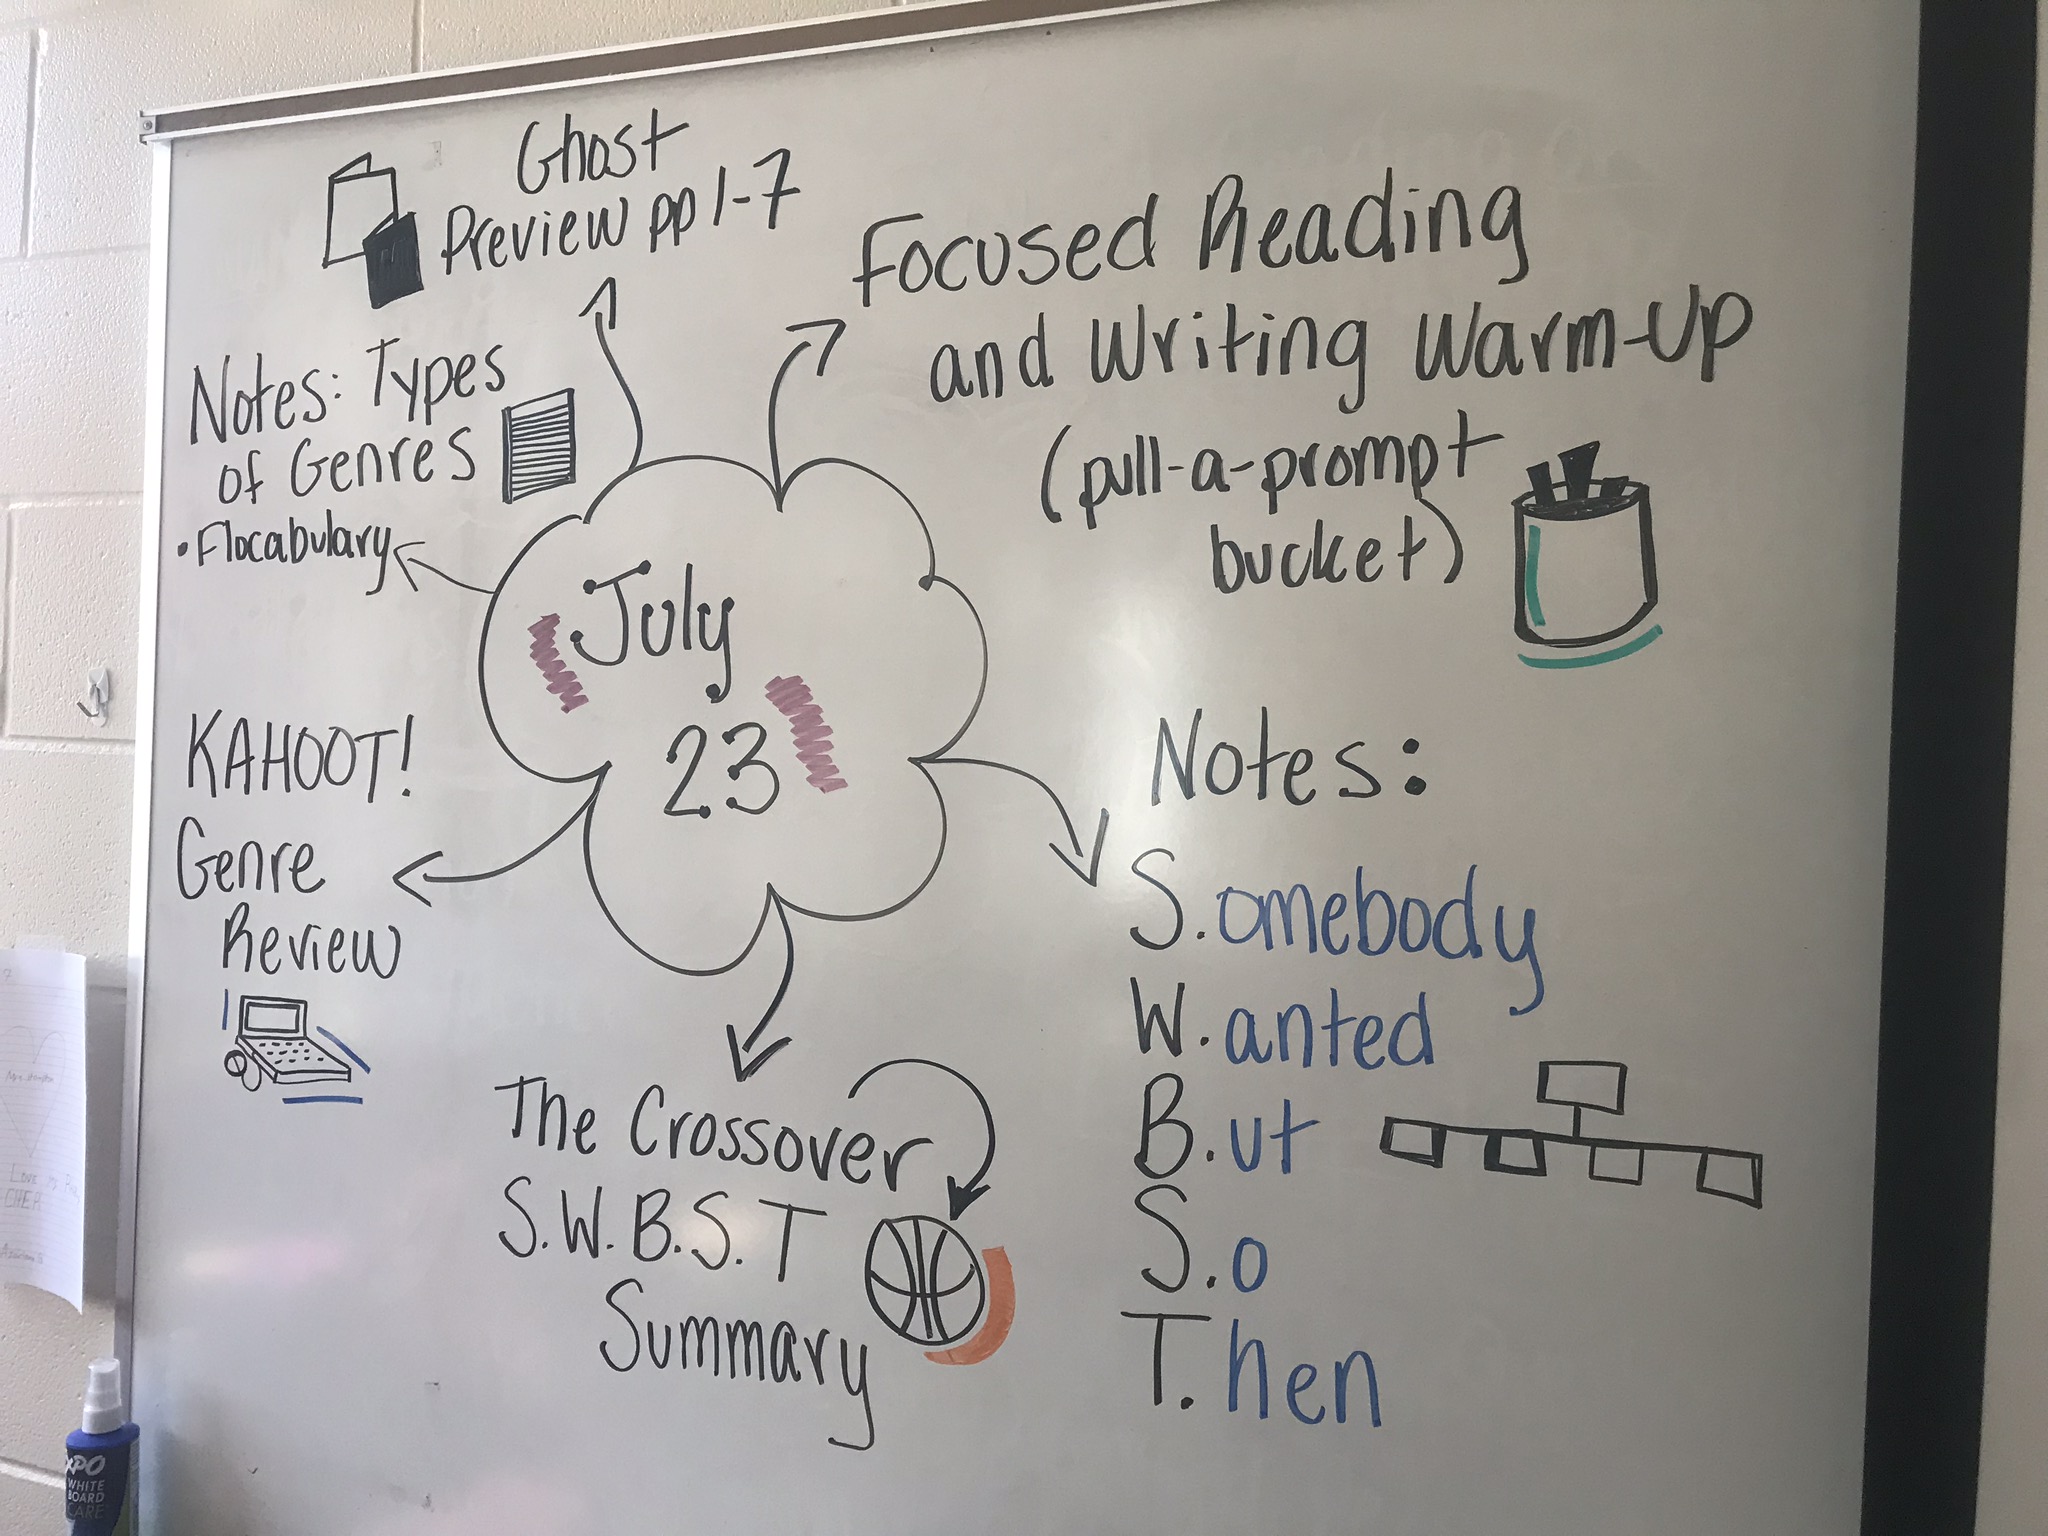 Ghost
Preview pp 1-7
Focused Reading
and Writing Warm-Up
(pull-a-prompt
bucket)
Notes: Types
of Genres
• Flocabulary
July
23
KAHOOT!
Genre
Review
Notes:
S.omebody
W.anted
B.ut
S.o
T.hen
The Crossover
S.W.B.S.T
Summary
XPO
WHITE
BOARD
CARE